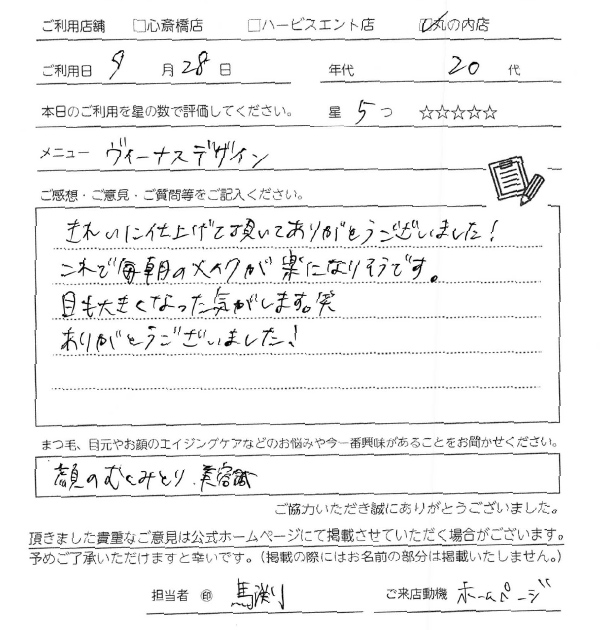 ご利用店舗 □心斎橋店 □ハービスエント店 ☑丸の内店
ご利用日 9月28日 年代 20代
本日のご利用を星の数で評価してください。 星 5つ ☆☆☆☆☆
メニュー ヴィーナスデザイン
ご感想・ご意見・ご質問等をご記入ください。
きれいに仕上げて頂いてありがとうございました!
これで毎朝のメイクが楽になりそうです。
目も大きくなった気がします。笑
ありがとうございました!
まつ毛、目元やお顔のエイジングケアなどのお悩みや今一番興味があることをお聞かせください。
顔のむくみとり、美容鍼
ご協力いただき誠にありがとうございました。
頂きました貴重なご意見は公式ホームページにて掲載させていただく場合がございます。
予めご了承いただけますと幸いです。(掲載の際にはお名前の部分は掲載いたしません。)
担当者 ㊞ 馬渕 ご来店動機 ホームページ